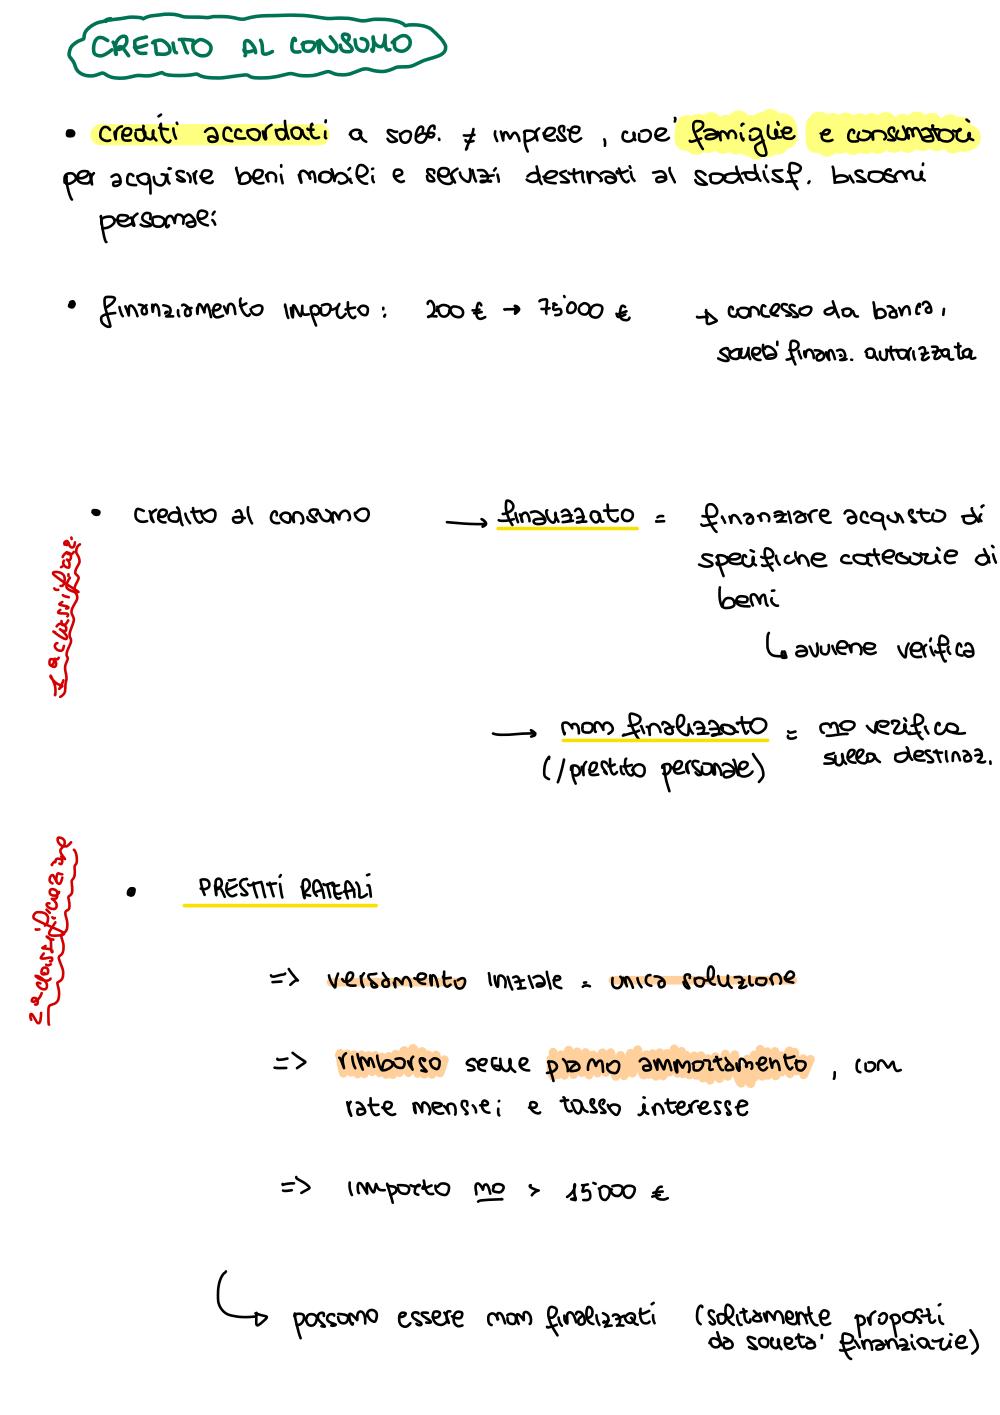 CREDITO AL CONSUMO
• crediti accordati a sogg. ≠ imprese, cioè famiglie e consumatori
per acquisire beni mobili e servizi destinati al soddisf. bisogni
personali
• finanziamento importo: 200 € → 75'000 € → concesso da banca,
società finanz. autorizzata
1ª classificaz.
• credito al consumo → finalizzato = finanziare acquisto di
specifiche categorie di
beni
↳ avviene verifica
→ non finalizzato = no verifica
(/prestito personale) sulla destinaz.
2ª classificazione
• PRESTITI RATEALI
=> versamento iniziale = unica soluzione
=> rimborso segue piano ammortamento, con
rate mensili e tasso interesse
=> importo no > 15'000 €
↳ possono essere non finalizzati (solitamente proposti
da società finanziarie)